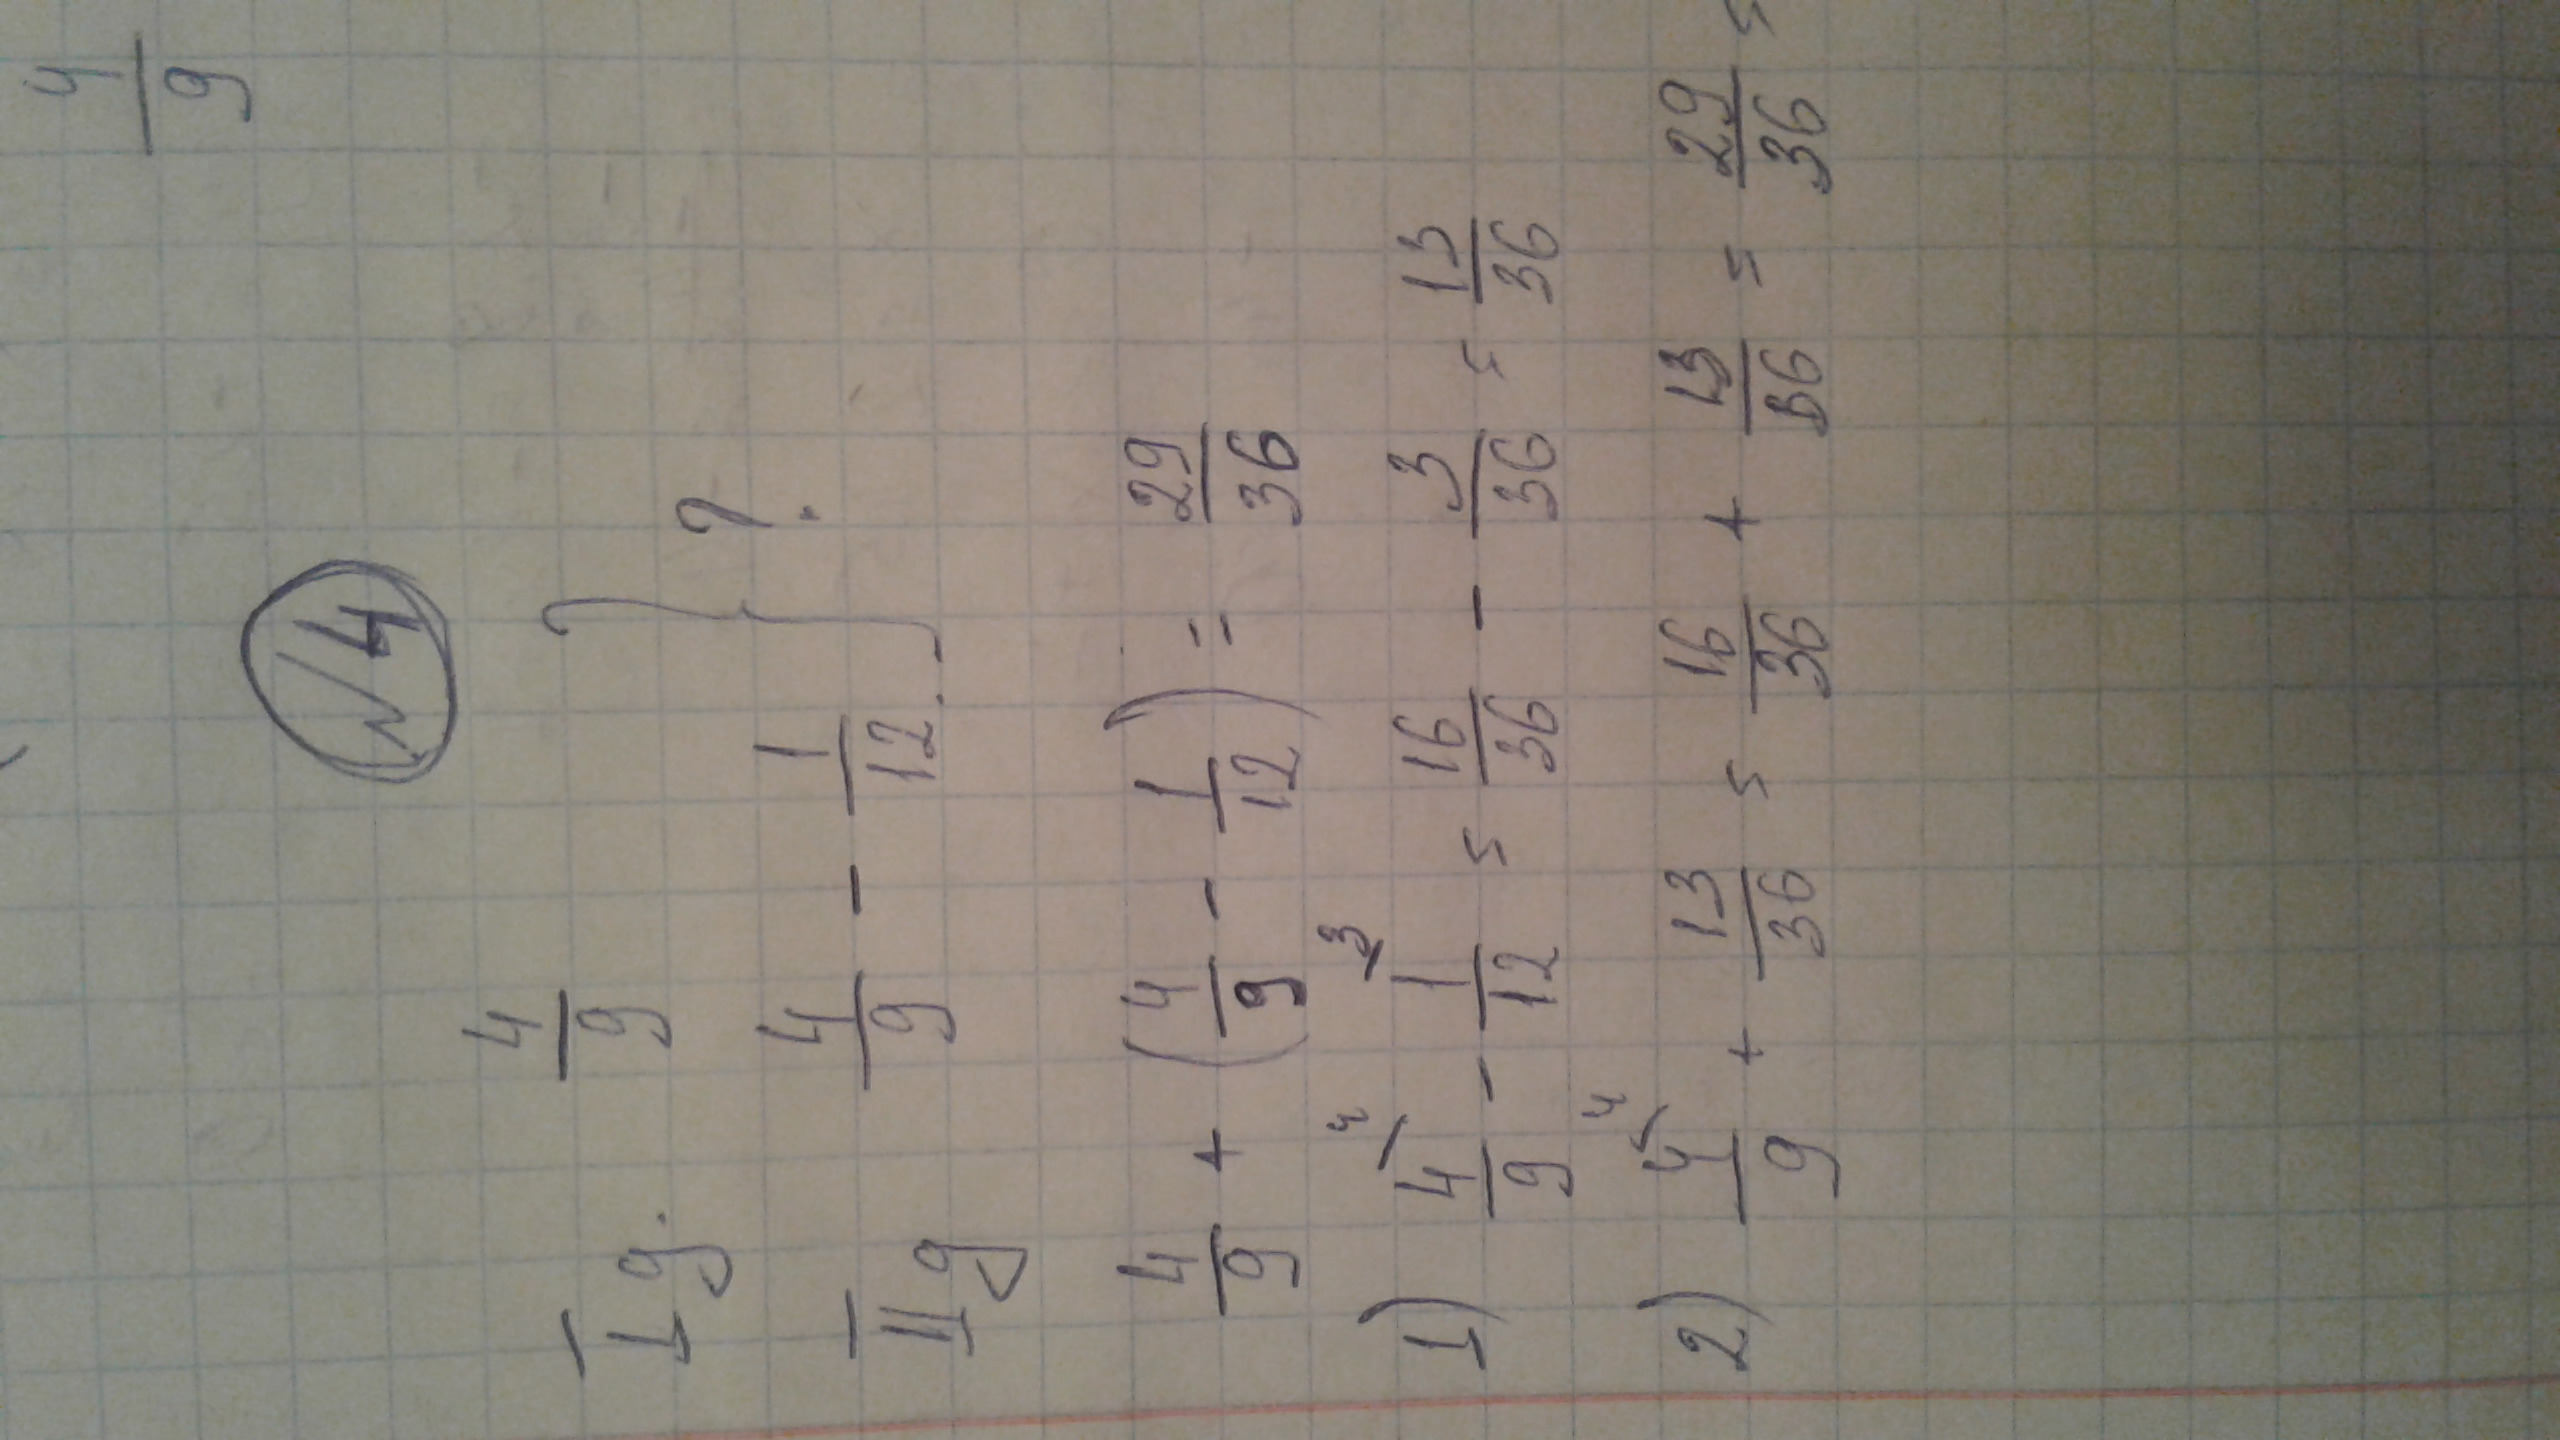 4/9
№4
I g. 4/9
II g 4/9 - 1/12. } ?
4/9 + (4/9 - 1/12) = 29/36
1) 4/9 ⁴ - 1/12 ³ = 16/36 - 3/36 = 13/36
2) 4/9 ⁴ + 13/36 = 16/36 + 13/36 = 29/36 =